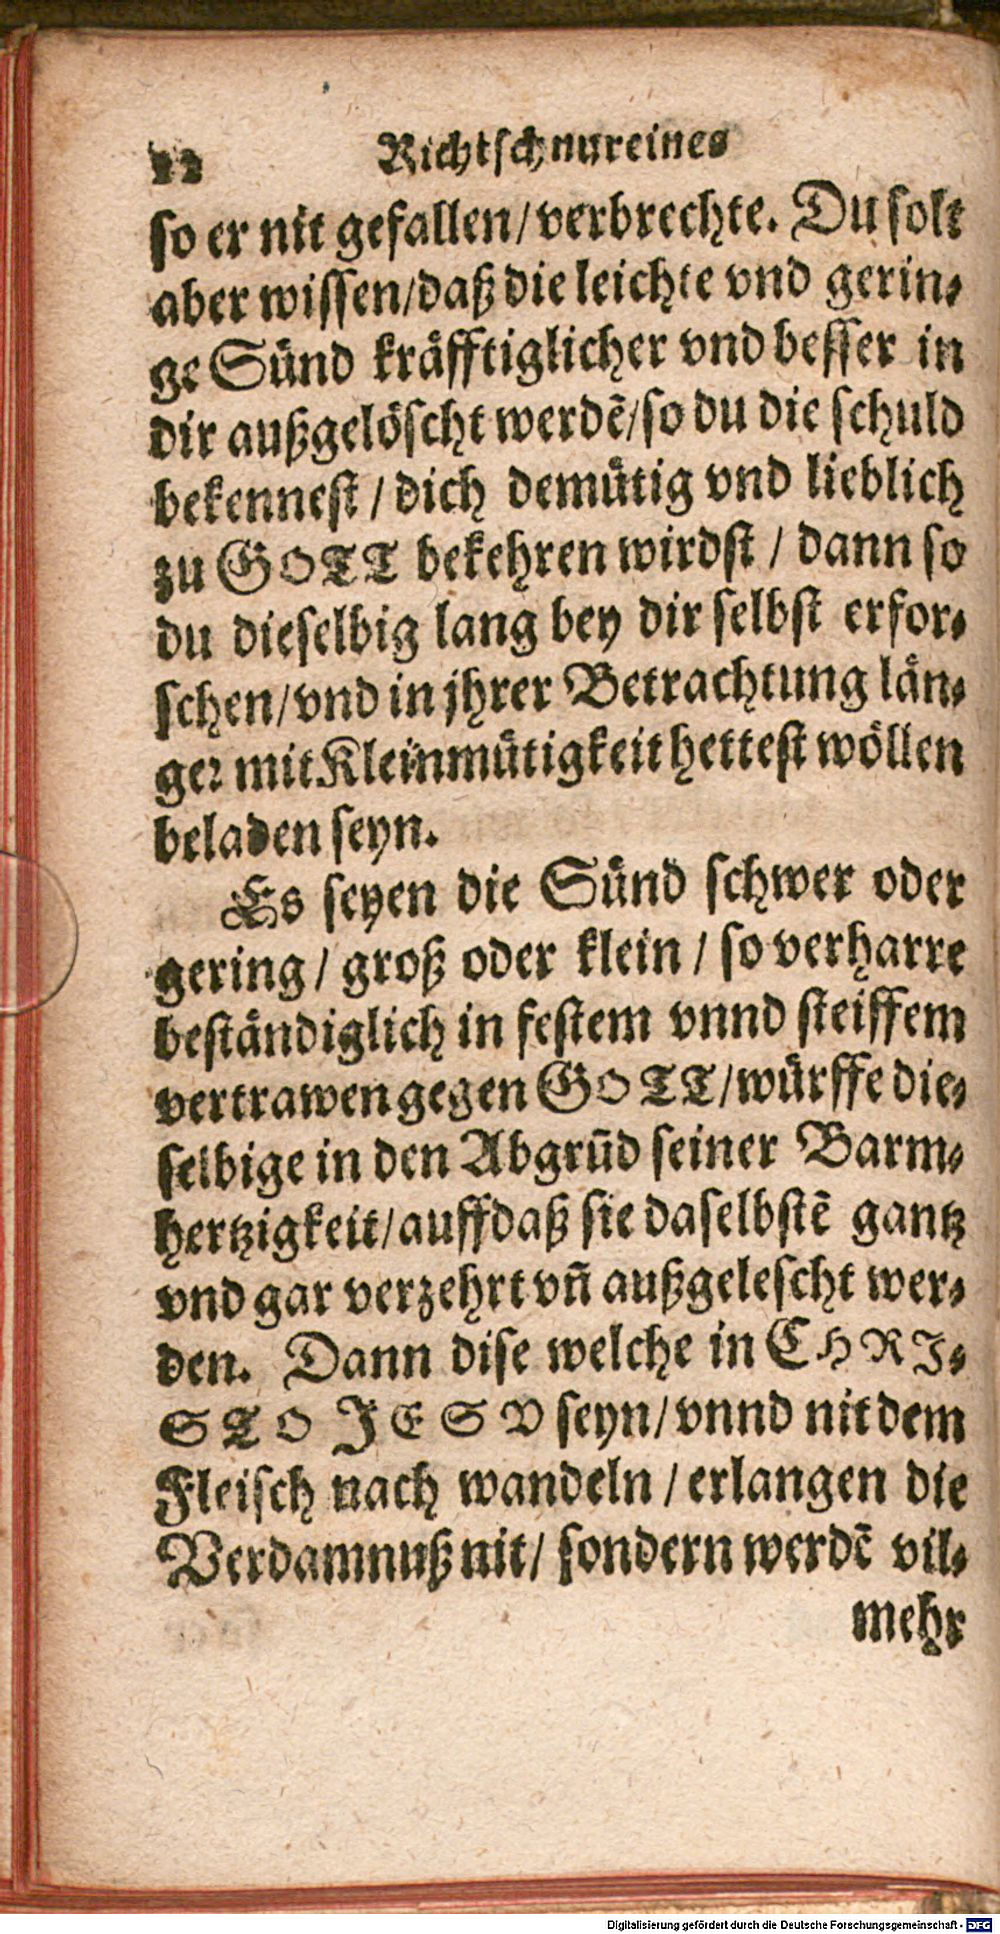 22 Richtschnur eines
so er nit gefallen/verbrechte. Du solt
aber wissen/daß die leichte vnd gerin⸗
ge Sünd kräfftiglicher vnd besser in
dir außgelöscht werdẽ/so du die schuld
bekennest / dich demütig vnd lieblich
zu GOTT bekehren wirdst / dann so
du dieselbig lang bey dir selbst erfor⸗
schen/vnd in jhrer Betrachtung län⸗
ger mit Kleinmütigkeit hettest wöllen
beladen seyn.
Es seyen die Sünd schwer oder
gering / groß oder klein / so verharre
beständiglich in festem vnnd steiffem
vertrawen gegen GOTT/würffe die⸗
selbige in den Abgrũd seiner Barm⸗
hertzigkeit/auffdaß sie daselbstẽ gantz
vnd gar verzehrt vñ außgelescht wer⸗
den. Dann dise welche in CHRI⸗
STO JESV seyn/vnnd nit dem
Fleisch nach wandeln / erlangen die
Verdamnuß nit/ sondern werdẽ vil⸗
mehr
Digitalisierung gefördert durch die Deutsche Forschungsgemeinschaft - DFG